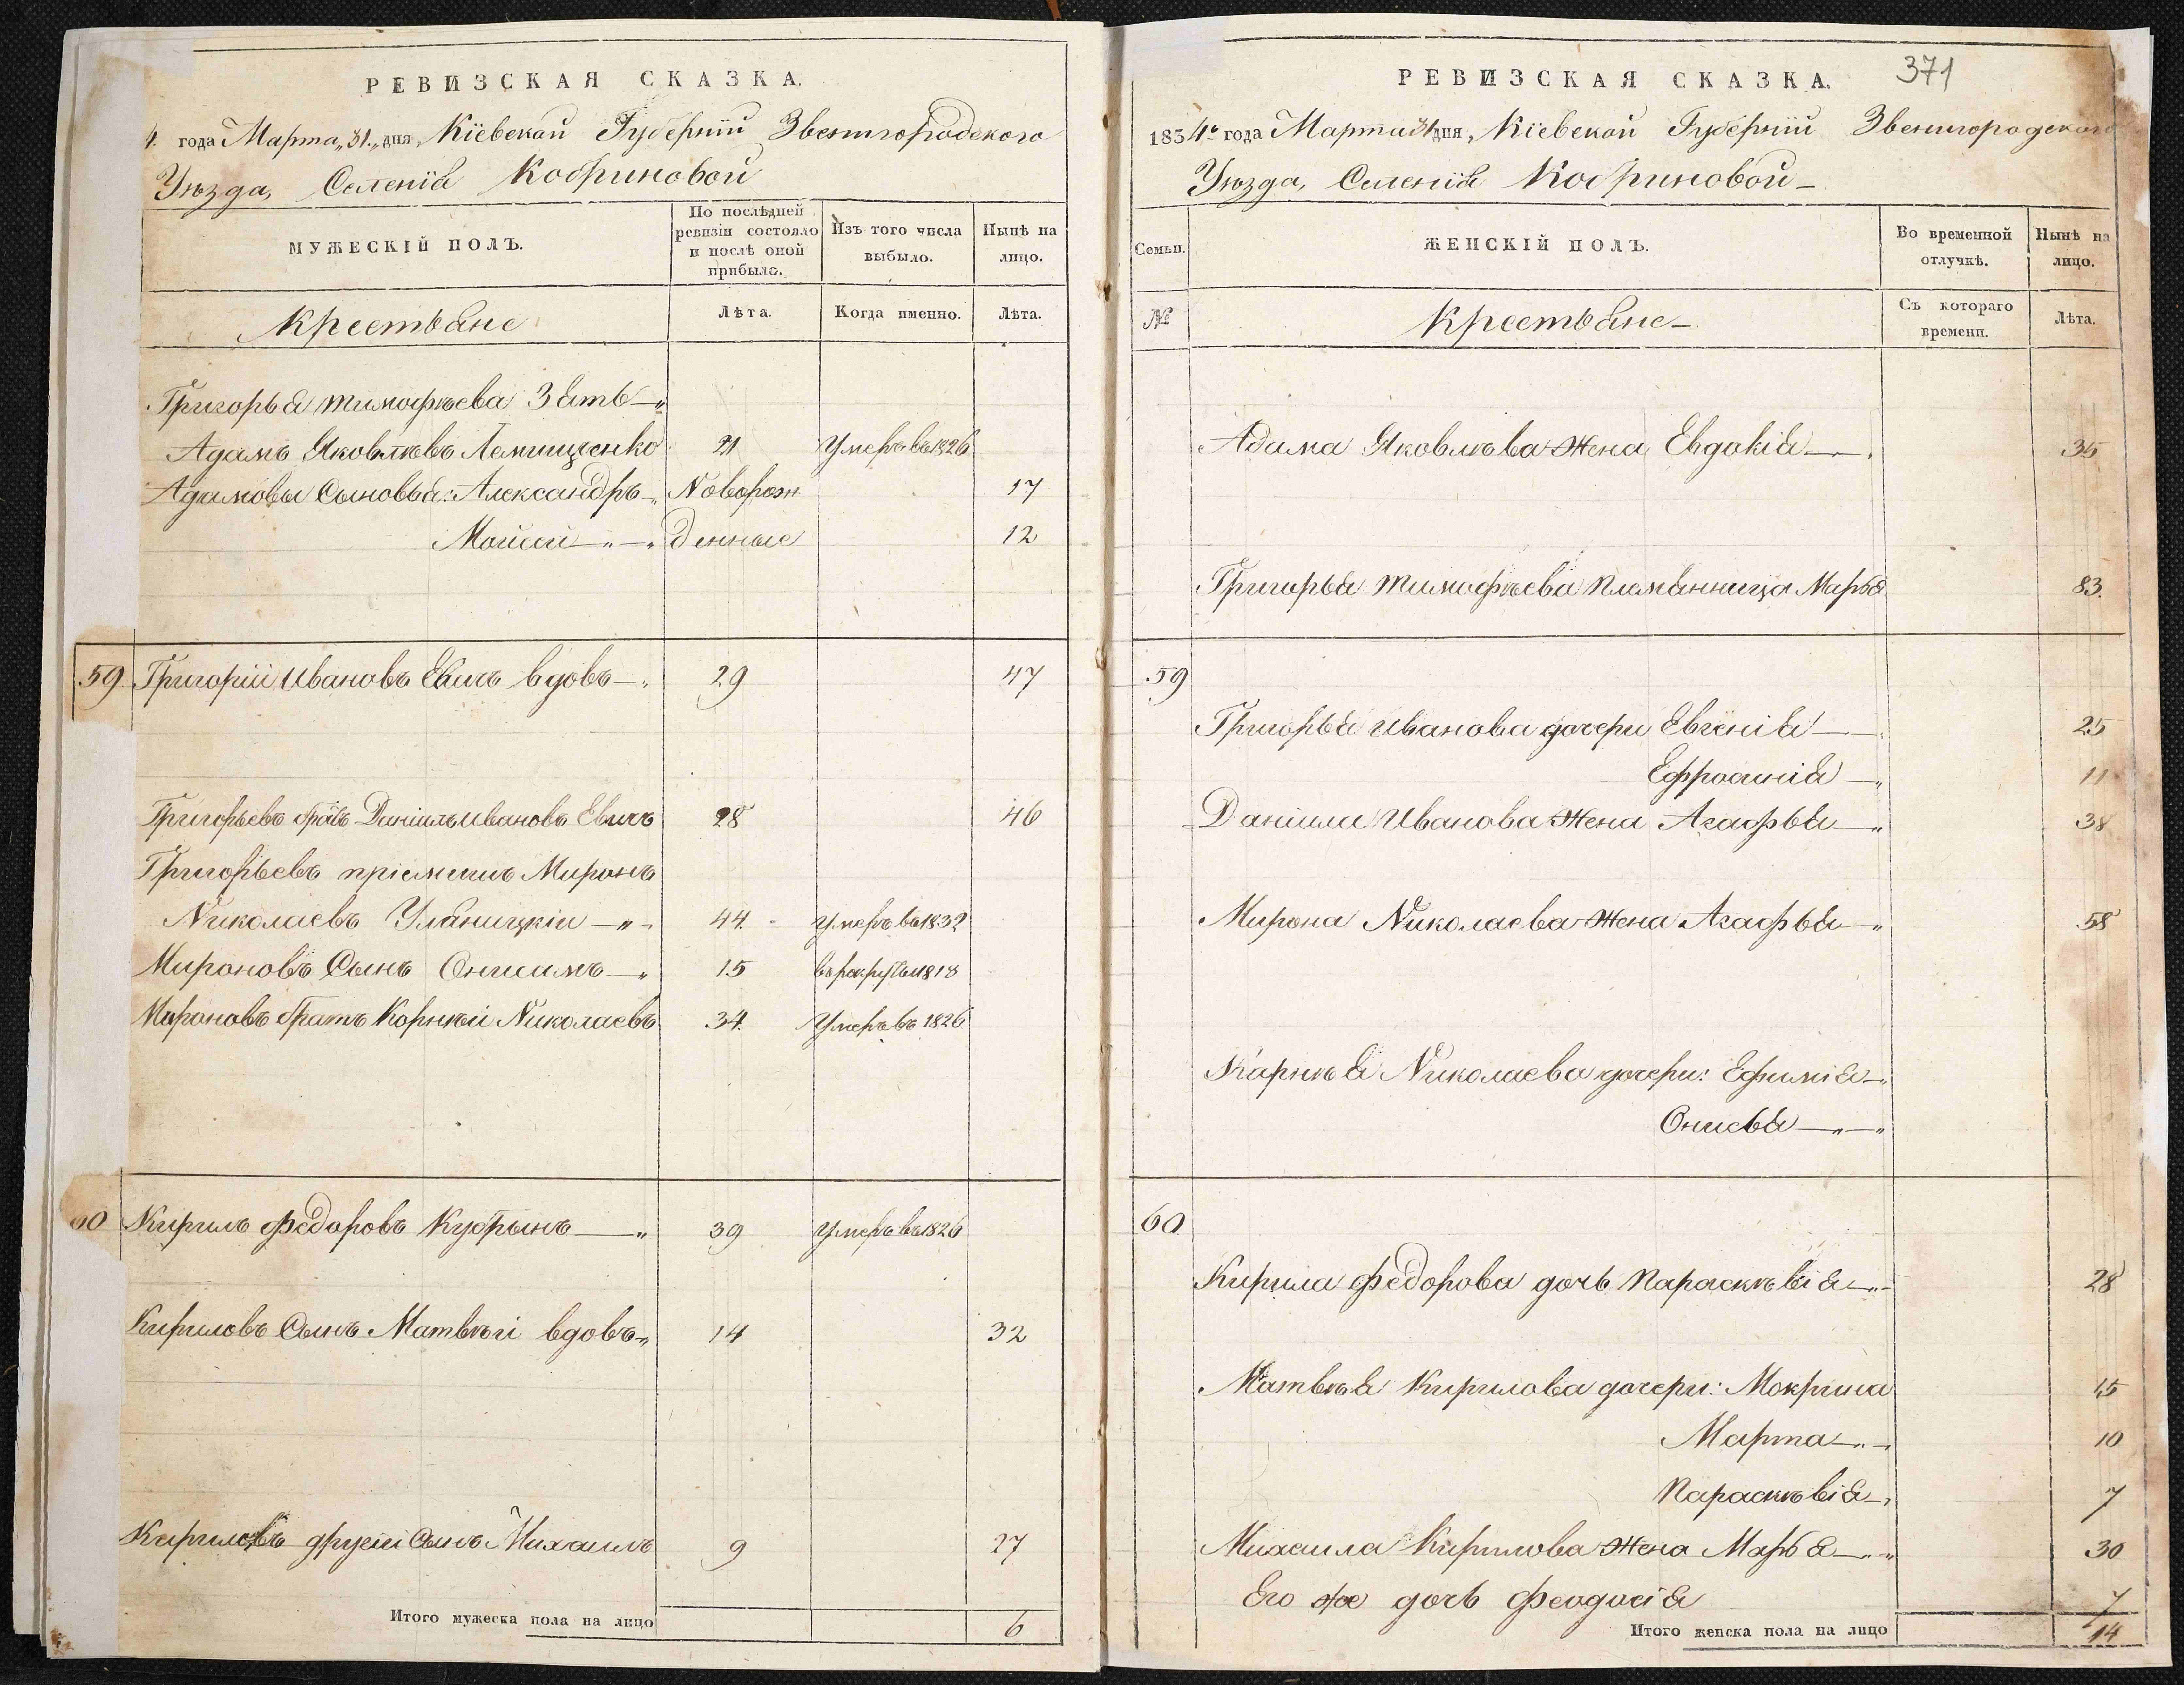 РЕВИЗСКАЯ СКАЗКА.
4. года Марта „31.„ дня, Кіевской Губерніи Звенигородского
Уѣзда, Селенія Кобриновой
МУЖЕСКІЙ ПОЛЪ.
По послѣдней ревизіи состояло и послѣ оной прибыло.
Изъ того числа выбыло.
Нынѣ на лицо.
Крестьяне
Лѣта.
Когда именно.
Лѣта.
Григорья Тимофѣева Зять
Адамъ Яковлѣвъ 21 Умеръ въ 1826
Адамовы Сыновья: Александръ Новорож 17
Мойсей денные 12
59. Григорій Ивановъ Евичъ вдовъ 29 47
Григорьевъ братъ Даніилъ Ивановъ Евичъ 28 46
Григорьевъ пріемышъ Миронъ
Николаевъ Уланицкій 44. Умеръ въ 1832
Мироновъ Сынъ Онисимъ 15 въ рекруты 1818
Мироновъ братъ Корнѣй Николаевъ 34. Умеръ въ 1826
60 Кирилъ Федоровъ Кубрынъ 39 Умеръ въ 1826
Кириловъ Сынъ Матвѣй вдовъ 14 32
Кириловъ другій Сынъ Михаилъ 9 27
Итого мужеска пола на лицо 6
371
РЕВИЗСКАЯ СКАЗКА.
1834го года Марта 31 дня, Кіевской Губерніи Звенигородского
Уѣзда, Селенія Кобриновой
Семьи.
ЖЕНСКІЙ ПОЛЪ.
Во временной отлучкѣ.
Нынѣ на лицо.
№
Крестьяне
Съ котораго времени.
Лѣта.
Адама Яковлѣва жена Евдокія 35
Григорья Тимофѣева племянница Марья 83.
59
Григорья Иванова дочери Евгенія 25
Ефросинія 11
Даніила Иванова жена Агафья 38
Мирона Николаева жена Агафья 58
Карнѣя Николаева дочери: Ефимія
Онисья
60.
Кирила Федорова дочь Параскѣвія 28
Матвѣя Кирилова дочери: Мокрина 15
Марта 10
Параскѣвія 7
Михаила Кирилова жена Марья 30
Его же дочь Феодосія 7
Итого женска пола на лицо 14